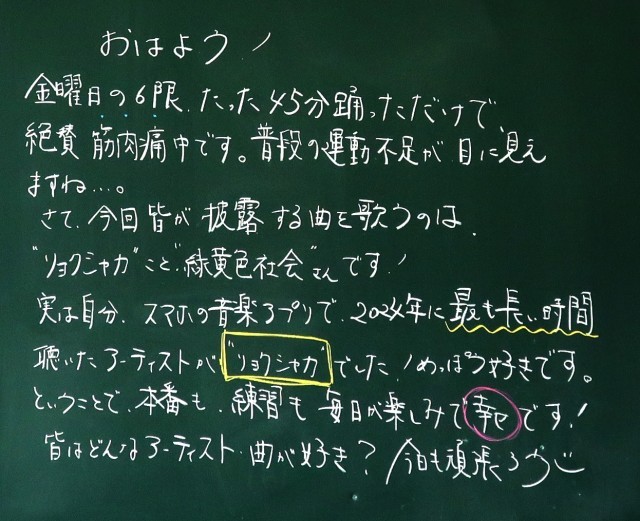 おはよう！
金曜日の6限、たった45分踊っただけで、
絶賛 筋肉痛中です。普段の運動不足が目に見え
ますね…。
さて、今回皆が披露する曲を歌うのは、
"リョクシャカ"こと"緑黄色社会"さんです！
実は自分、スマホの音楽アプリで、2024年に最も長い時間
聴いたアーティストが"リョクシャカ"でした！めっぽう好きです。
ということで、本番も、練習も毎日が楽しみで幸せです！
皆はどんなアーティスト・曲が好き？今日も頑張ろう